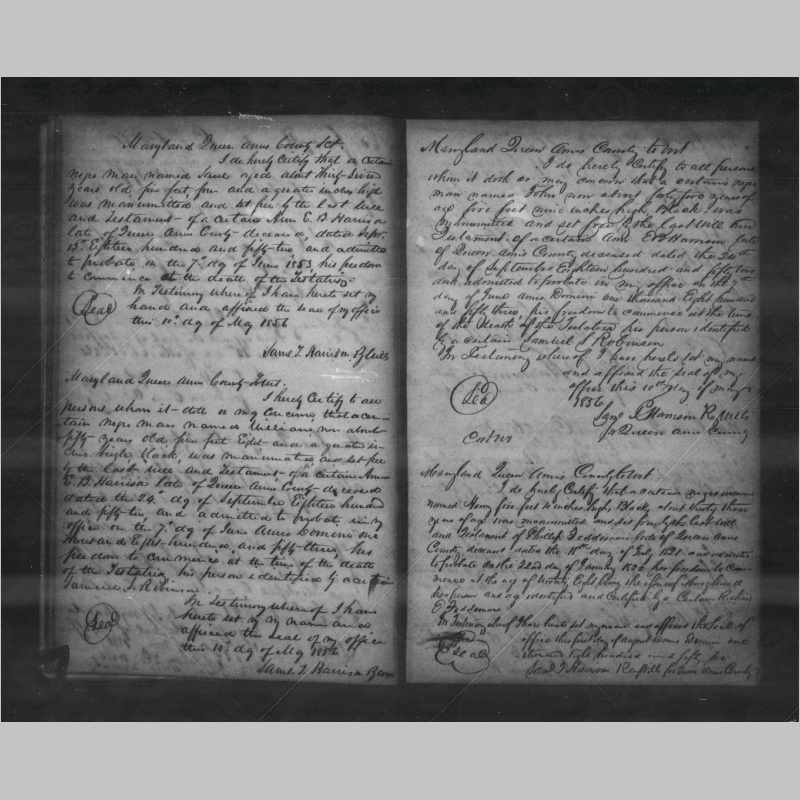 Maryland Queen Anns County Sct.
I do hereby Certify that a certain
negro man named aged about Thirty Seven
years old five feet four and a quarter inches high
was manumitted and set free by the last will
and Testament of a certain Ann E. B Harrison
late of Queen Anns County deceased, dated Sept.
Eighteen hundred and fifty-two and admitted
to probate on the 7th day of June 1853, his freedom
to commence at the death of the Testatrix
In Testimony whereof I have hereto set my
Seal hand and affixed the seal of my office
this 10th dy of May 1856
Harrison
Maryland Queen Ann County
I hereby Certify to all
persons whom it doth or may Concern, that a cer-
tain negro man named William, now about
fifty years old five feet Eight and a quarter in-
ches high black, was manumitted and set free
by the last will and Testament of a certain Ann
E. B Harrison late of Queen Anns County deceased
dated the 24th dy of September Eighteen hundred
and fifty-two, and admitted to probate in my
office on the 7th dy of June Anno Domini one
thousand Eight hundred and fifty three, his
freedom to commence at the time of the death
of the Testatrix, his person identified by a certain
Samuel J. Robinson
In Testimony whereof I have
hereto set my my name and
Seal affixed the seal of my office
this 10th dy of May 1856
Harrison
Maryland Queen Anns County to wit
I do hereby Certify to all persons
whom it doth or may concern that a certain negro
man named John now about forty five years of
age five feet nine inches high, Black was
manumitted and set free by the last will and
Testament of a certain Ann E B Harrison late
of Queen Anns County deceased dated the 24th
day of September Eighteen hundred and fifty two
and admitted to probate in my office on the 7th
day of June anno Domini one thousand Eight hundred
and fifty three, his freedom to commence at the time
of the Death of the Testatrix his person identified
by a certain Samuel J Robinson
In Testimony whereof I have hereto set my name
and affixed the seal of my
Seal office this 10th day of May
1856
Harrison Reg Wills
for Queen Ann County
Maryland Queen Anns County to wit
I do hereby Certify that a certain negro woman
named Henny five feet inches high, Black, about thirty three
years of age was manumitted and set free by the last will
and Testament of Phillip Feddeman late of Queen Anns
County deceased dated the 18th day of July 1821 and admitted
to probate on the 22nd day of January her freedom to Com-
mence at the age of twenty Eight
her person identified and Certified by a Certain
Feddeman
In Testimony whereof I have hereto set my name and affixed the Seal of
Seal office this day of August Anno Domini one
thousand eight hundred and fifty six
Harrison Reg Wills for Queen Anns County